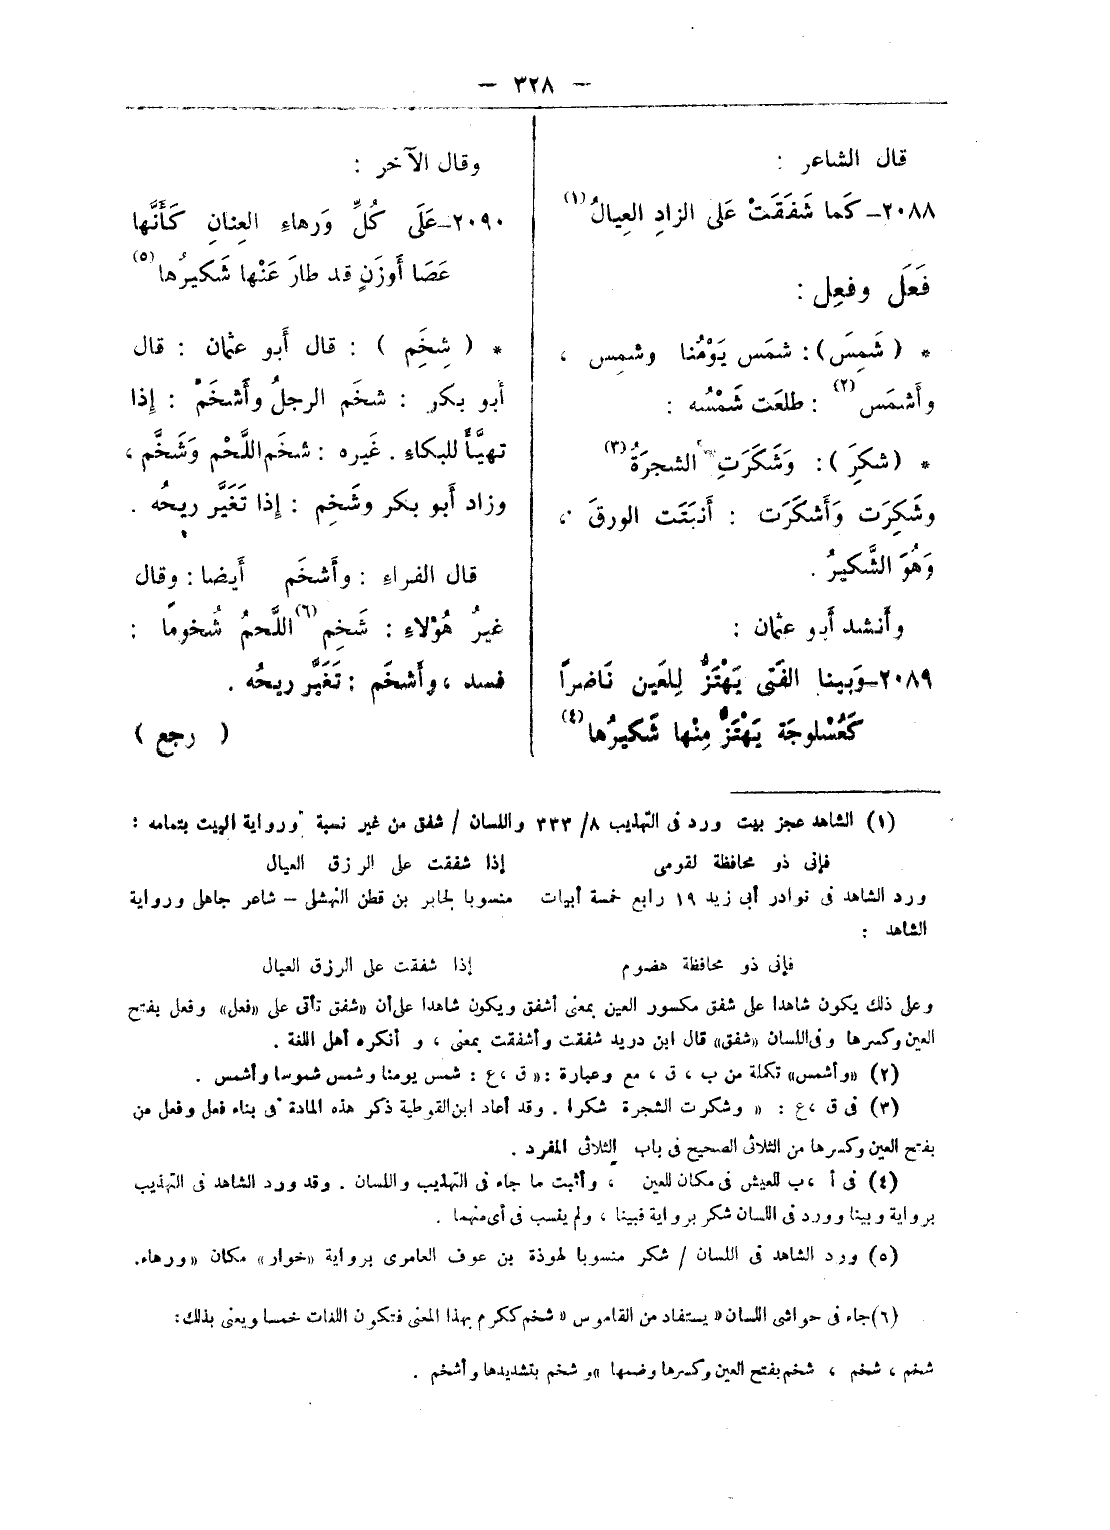 — ٣٢٨ —
قال الشاعر :
٢٠٨٨ــ كَما شَفَقَتْ عَلى الزادِ العِيالُ (١)
فَعَل وفعِل :
* ( شَمِسَ ) : شمَس يَوْمُنا وشمِس ،
وأَشمَس (٢) : طلعَت شَمْسُه :
* ( شكِرَ ) : وَشَكَرَتِ الشجرَةُ (٣)
وشَكِرَت وَأَشكَرَت : أَنبَتَت الورقَ ،
وَهُوَ الشَّكيرُ .
وأَنشد أَبو عثمان :
٢٠٨٩ــ وَبينا الفَتى يَهْتَزُّ لِلعَين نَاضراً
كَعُسْلوجَة يَهْتَزُّ مِنْها شَكيرُها (٤)
وقال الآخر :
٢٠٩٠ــ عَلَى كُلِّ وَرهاءِ العِنانِ كَأَنَّها
عَصَا أَوزَنٍ قد طارَ عَنْها شَكيرُها (٥)
* ( شخَم ) : قال أَبو عثمان : قال
أبو بكر : شخَم الرجلُ وأَشخَمْ : إذا
تهيَّأَ للبكاءِ . غَيره : شخَم اللَّحْم وَشَخَّم ،
وزاد أَبو بكر وشَخِم : إذا تَغَيَّر ريحُه .
قال الفراءِ : وأَشخَم أَيضا : وقال
غيرُ هؤلاءِ : شَخِم (٦) اللَّحمُ شُخومًا :
فسد ، وأَشخَم : تَغَيَّر ريحُه .
( رجع )
(١) الشاهد عجز بيت ورد فى التهذيب ٨/ ٣٣٣ واللسان / شفق من غير نسبة ورواية البيت بتمامه :
فإنى ذو محافظة لقومى إذا شفقت على الرزق العيال
ورد الشاهد فى نوادر أبى زيد ١٩ رابع خمسة أبيات منسوبا لجابر بن قطن النهشلى – شاعر جاهلى ورواية
الشاهد :
فإنى ذو محافظة هضوم إذا شفقت على الرزق العيال
وعلى ذلك يكون شاهدا على شفق مكسور العين بمعنى أشفق ويكون شاهدا على أن «شفق تأتى على «فعل» وفعل بفتح
العين وكسرها وفى اللسان «شفق» قال ابن دريد شفقت وأشفقت بمعنى ، و أنكره أهل اللغة .
(٢) «وأشمس» تكملة من ب ، ق ، مع وعبارة : «ق ، ع : شمس يومنا وشمس شموسا وأشمس .
(٣) فى ق ، ع : « وشكرت الشجرة شكرا . وقد أعاد ابن القوطية ذكر هذه المادة فى بناء فعل وفعل من
بفتح العين وكسرها من الثلاثى الصحيح فى باب الثلاثى المفرد .
(٤) فى أ ، ب للعيش فى مكان للعين ، وأثبت ما جاء فى التهذيب واللسان . وقد ورد الشاهد فى التهذيب
برواية وبينا وورد فى اللسان شكر برواية فبينا ، ولم ينسب فى أى منهما .
(٥) ورد الشاهد فى اللسان / شكر منسوبا لهوذة بن عوف العامرى برواية «خوار» مكان «ورهاء.
(٦) جاء فى حواشى اللسان « يستفاد من القاموس « شخم ككرم بهذا المعنى فتكون اللغات خمسا ويعنى بذلك :
شخم ، شخم ، شخم بفتح العين وكسرها وضمها » و شخم بتشديدها وأشخم .